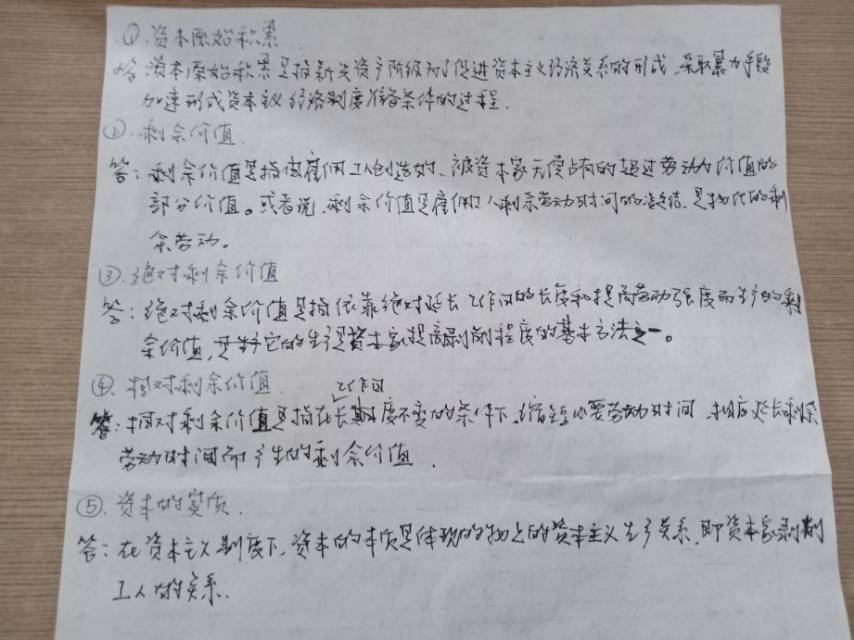 ①.资本原始积累
答:资本原始积累是指新兴资产阶级为了促进资本主义经济关系的形成,采取暴力手段
加速形成资本主义经济制度准备条件的过程.
②.剩余价值.
答:剩余价值是指由雇佣工人创造的、被资本家无偿占有的超过劳动力价值的
部分价值。或者说,剩余价值是雇佣工人剩余劳动时间的凝结,是物化的剩
余劳动。
③.绝对剩余价值
答:绝对剩余价值是指依靠绝对延长工作日的长度和提高劳动强度而生产的剩
余价值,是资本家提高剥削程度的基本方法之一。
④.相对剩余价值.
工作日
答:相对剩余价值是指在长度不变的条件下,缩短必要劳动时间,相应延长剩余
劳动时间而产生的剩余价值.
⑤.资本的实质.
答:在资本主义制度下,资本的本质是体现的物上的资本主义生产关系,即资本家剥削
工人的关系.